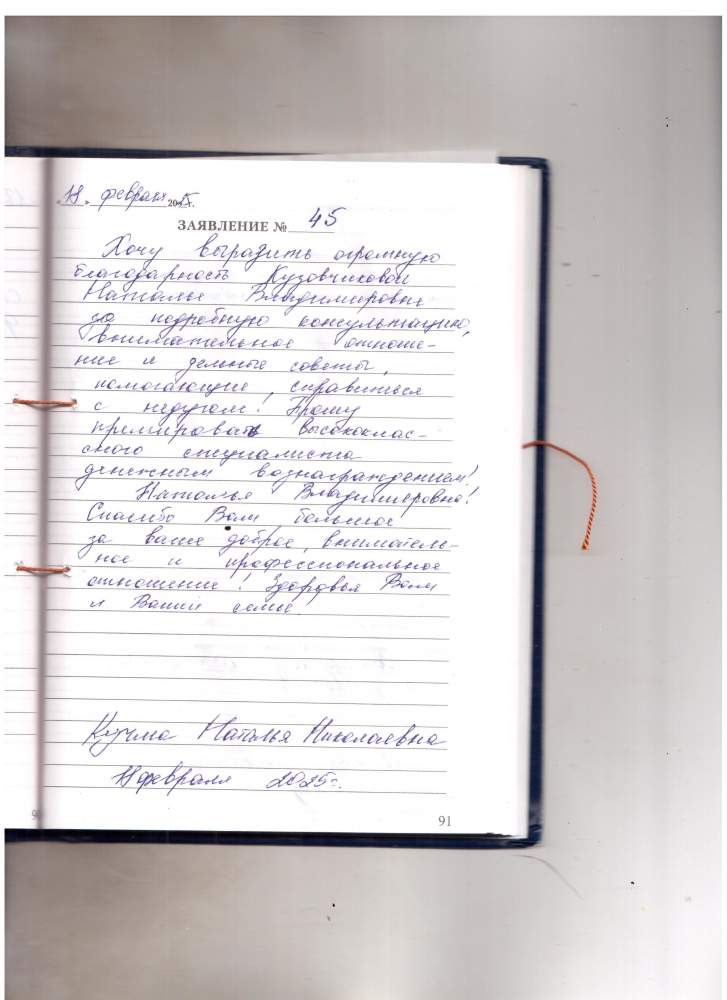 «18» февраля 2025г.
ЗАЯВЛЕНИЕ № 45
Хочу выразить огромную
благодарность Кузовчиковой
Наталье Владимировне
за подробную консультацию,
внимательное отноше-
ние и дельные советы,
помогающие, справиться
с недугом! Прошу
премировать высококлас-
сного специалиста
денежным вознаграждением!
Наталья Владимировна!
Спасибо Вам большое
за ваше доброе, вниматель-
ное и профессиональное
отношение! Здоровья Вам
и Вашей семье!
Кучма Наталья Николаевна
18 февраля 2025г.
91